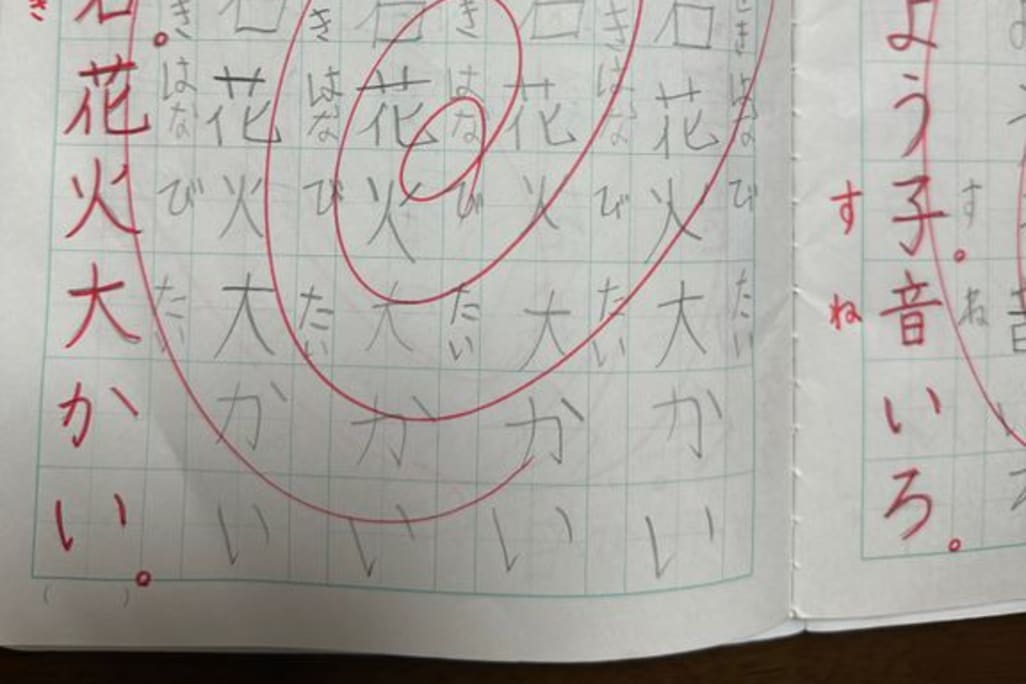 よう子音いろ。
すね
すね
きはなびたい
石花火大かい
きはなびたい
石花火大かい
きはなびたい
石花火大かい
きはなびたい
石花火大かい
きはなびたい
石。花火大かい。
き